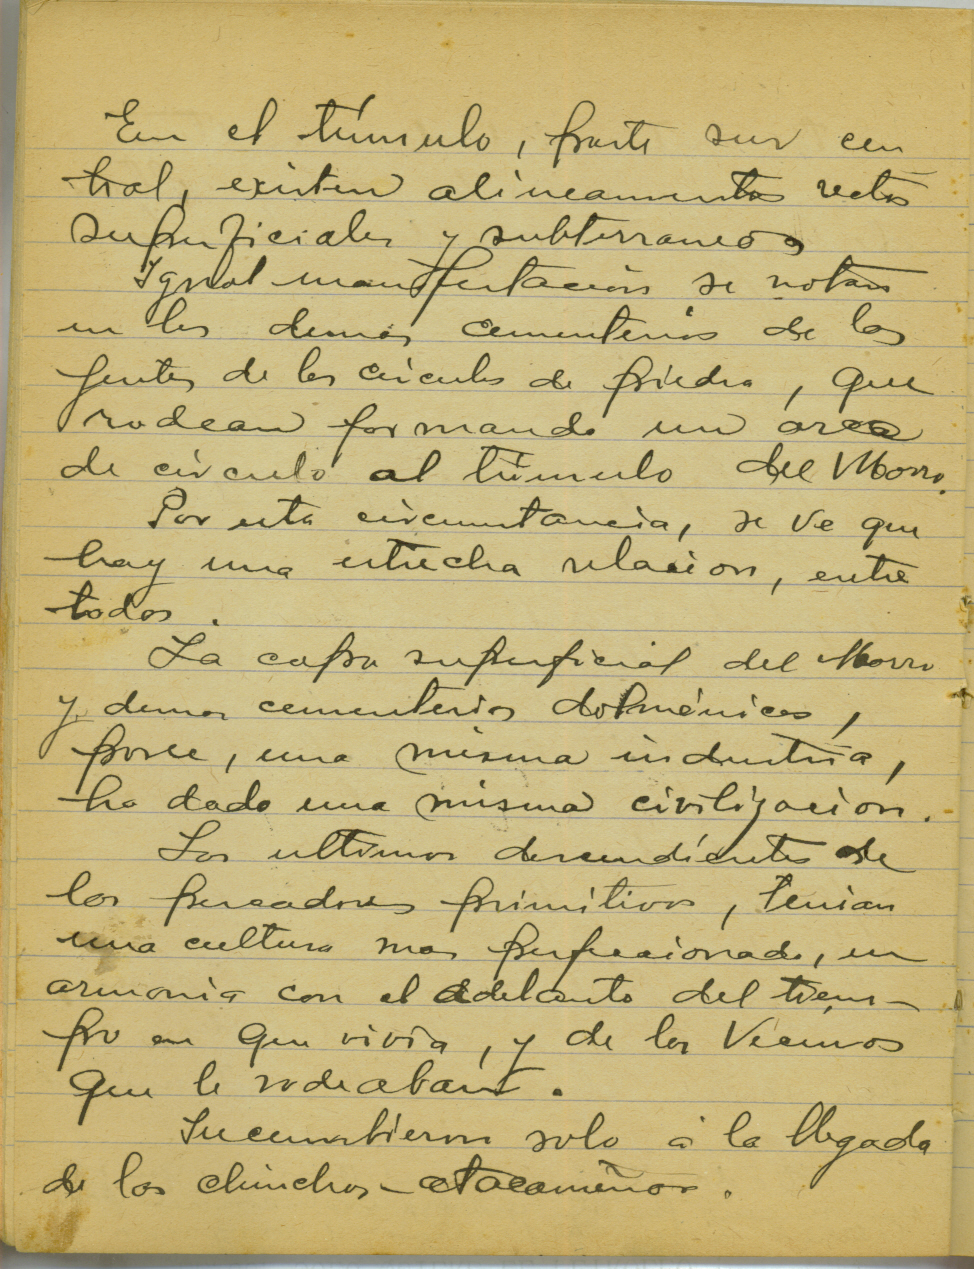 En el túmulo, parte sur cen
tral, existen alineamientos rectos
superficiales y subterraneos
Igual manifestacion se notan
en los demas cementerios de las
gentes de los circulos de piedra, que
rodean formando un arco
de circulo al túmulo del Morro.
Por esta circunstancia, se ve que
hay una estrecha relacion, entre
todos.
La capa superficial del Morro
y demas cementerios dolménicos,
posee, una misma industria,
ha dado una misma civilizacion.
Los ultimos descendientes de
los pescadores primitivos, tenian
una cultura mas perfeccionada, en
armonia con el adelanto del tiem-
po en que vivia, y de los vecinos
que le rodeaban.
Sucumbieron solo á la llegada
de los chinchas-atacameños.